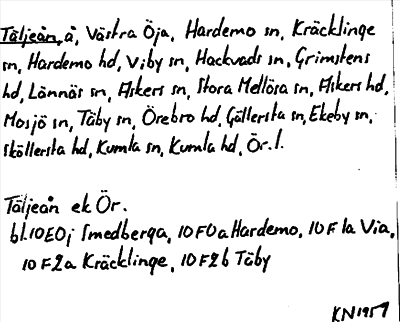 Täljeån, å, Västra Öja, Hardemo sn, Kräcklinge
sn, Hardemo hd, Viby sn, Hackvads sn, Grimstens
hd, Lännäs sn, Askers sn, Stora Mellösa sn, Askers hd,
Mosjö sn, Täby sn, Örebro hd, Gällersta sn, Ekeby sn,
Sköllersta hd, Kumla sn, Kumla hd, Ör. l.
Täljeån ek Ör.
bl. 10E0j Smedberga, 10F0a Hardemo, 10F1a Via,
10F2a Kräcklinge, 10F2b Täby
KN 1957